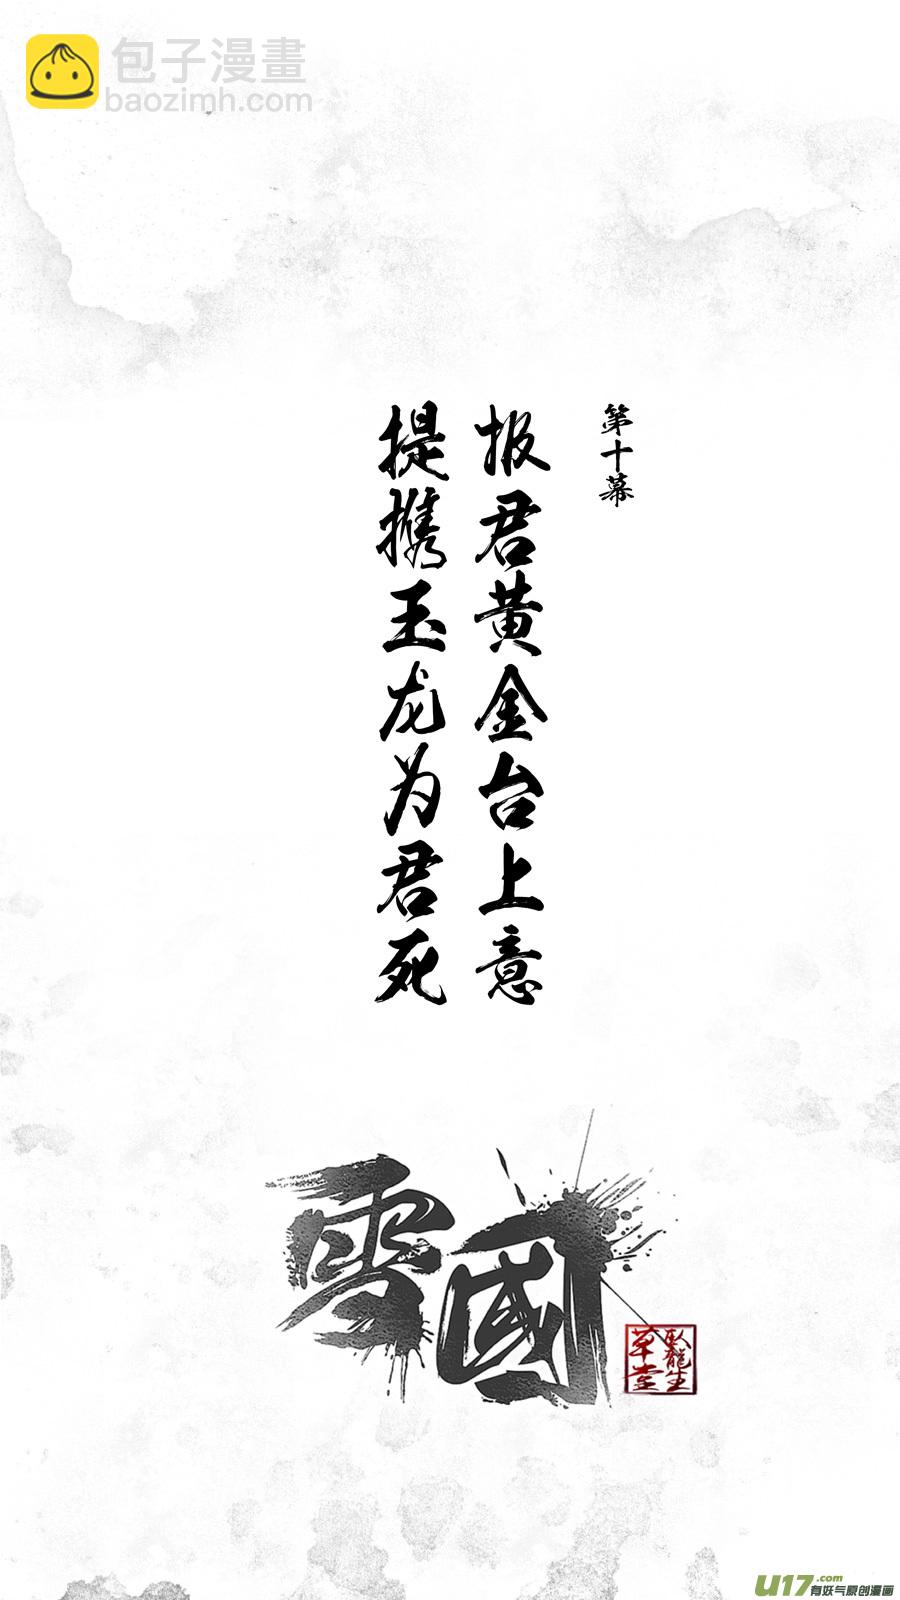 包子漫畫
baozimh.com
第十幕
报君黄金台上意
提携玉龙为君死
雪國
臥龍生
草堂
U17.com
有妖气原创漫画